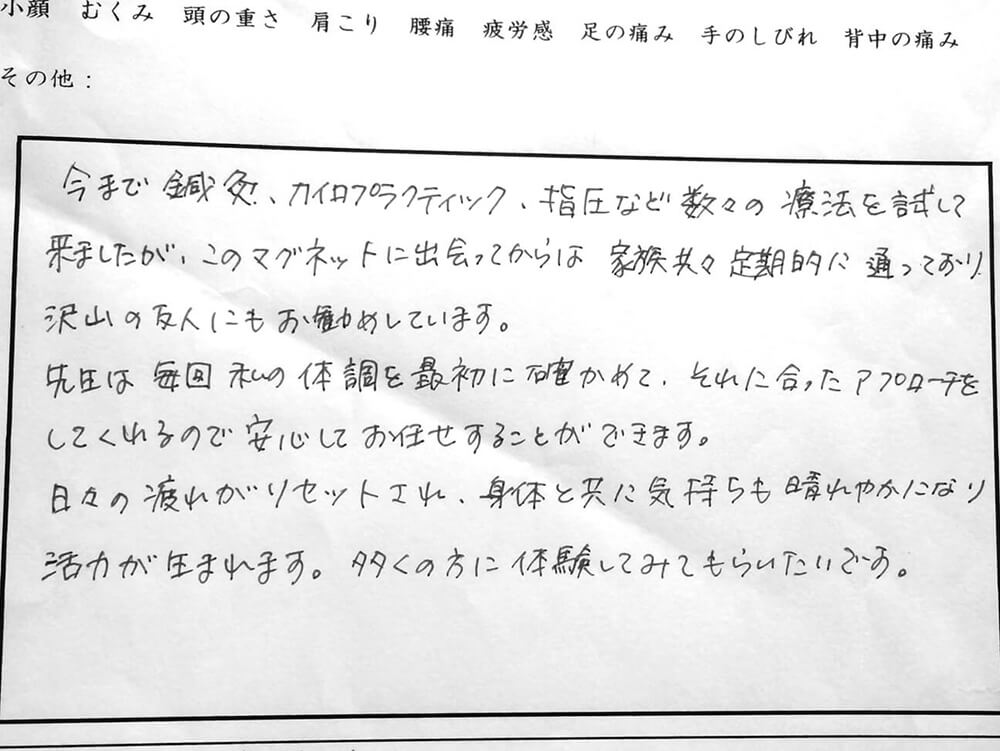 小顔 むくみ 頭の重さ 肩こり 腰痛 疲労感 足の痛み 手のしびれ 背中の痛み
その他：
今まで鍼灸、カイロプラクティック、指圧など数々の療法を試して
来ましたが、このマグネットに出会ってからは家族共々定期的に通っており
沢山の友人にもお勧めしています。
先生は毎回私の体調を最初に確かめて、それに合ったアプローチを
してくれるので安心してお任せすることができます。
日々の疲れがリセットされ、身体と共に気持ちも晴れやかになり
活力が生まれます。多くの方に体験してみてもらいたいです。